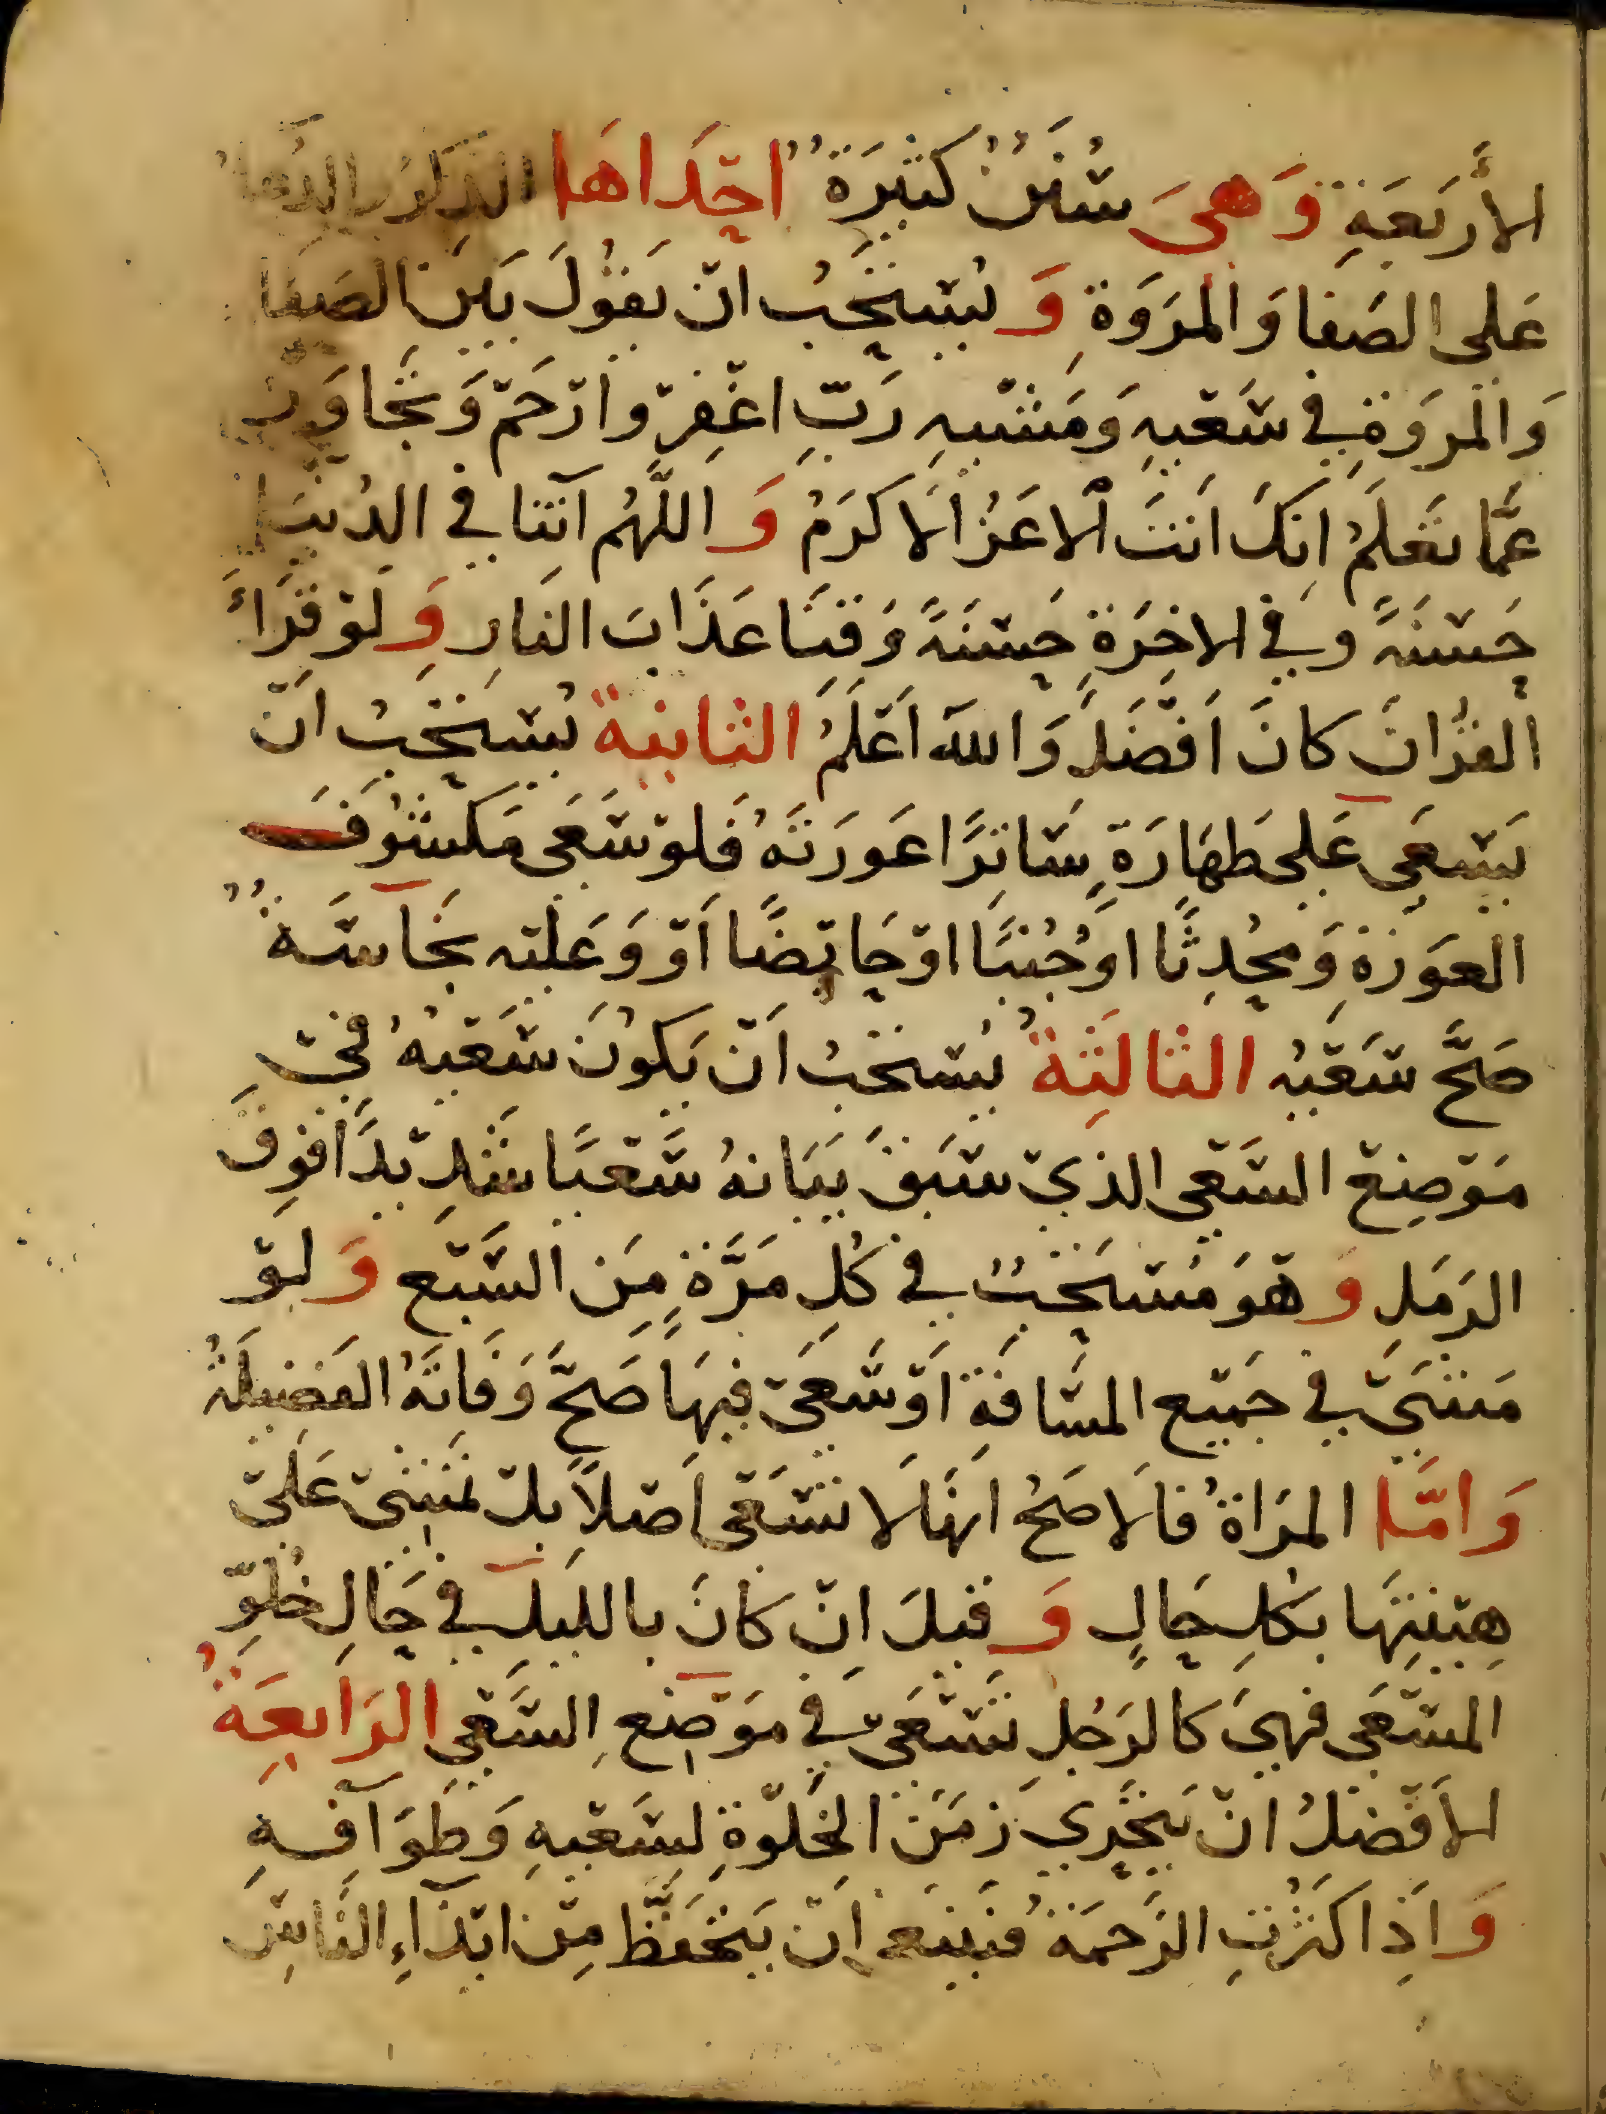 الأَرْبَعَةِ وَهِيَ سُنَنٌ كَثِيرَةٌ احْدَاهَا الذِكرُ والدُعا
عَلى الصَفا وَالمرَوَةِ وَيُسْتَحَبُ انْ يَقُولَ بَيْنَ الصَفَا
وَالمَروَةِ في سَعْيِهِ وَمَشْيِهِ رَبِّ اغْفِرْ وارْحَمْ وَتَجَاوَزْ
عَمَّا تَعْلَمُ اِنَكَ اَنتَ الاعَزُ الاَكرَمُ وَ اللَّهُم آتِنا في الدُنْيَا
حَسَنَةً وَفي الاخِرَةِ حَسَنَةً وَقِنَا عَذَابَ النَارِ وَلَوْ قَرَاءَ
القُرْانَ كانَ اَفْضَلَ وَاللهُ اَعْلَمُ الثانية يُسْتَحَبُ اَنْ
يَسْعَى عَلى طَهَارَةٍ سَاتِرًا عَورَتَهُ فَلَوْ سَعَى مَكشُوفَ
العَورَةِ وَمحْدِثًا اوْ جُنبًا اوْ حَايِضًا اَوْ وَعَلَيْهِ نَجَاسَةٌ
صَحَّ سَعْيُهُ الثالثَةُ يُسْتَحَبُ اَنْ يَكُونَ سَعْيُهُ فِيْ
مَوْضِعِ السَعْي الَذِيْ سَبَقَ بَيَانهُ سَعْيًا شَدِيْدًا فَوقَ
الرَمَلِ وَهْوَ مُسْتَحَبٌ في كُلِ مَرَّةٍ مِنَ السَبْع وَلَوْ
مَشَىَ في جَميْع المسَافَة اَوْ سَعَىْ فِيهَا صَحَّ وَفَاتَهُ الفَضِيلَةُ
وَامَّا المرَاةُ فالاَصَحُ انَهَا لَا تَسْعَى اَصْلاً بلْ تمْشِيْ عَلَىْ
هِيْنَتِهَا بكُلِ حَالٍ وَقيلَ اِنْ كَانَ بالليلِ في حَالِ خُلُوِّ
المسْعَى فهىَ كالرَجُلِ تَسْعَىْ في مَوْضِعِ السَعْيِ الرَابعَةُ
الاَفْضَلُ انْ يَتَحَرِي زَمَنَ الخَلوَةِ لسَعْيِهِ وَطَوَافِهِ
وَاذَا كَثُرَتِ الزَحمَة فيَنبَغِى اَنْ يَتحَفَّظ مِنْ ايْذَاءِ النَّاسِ